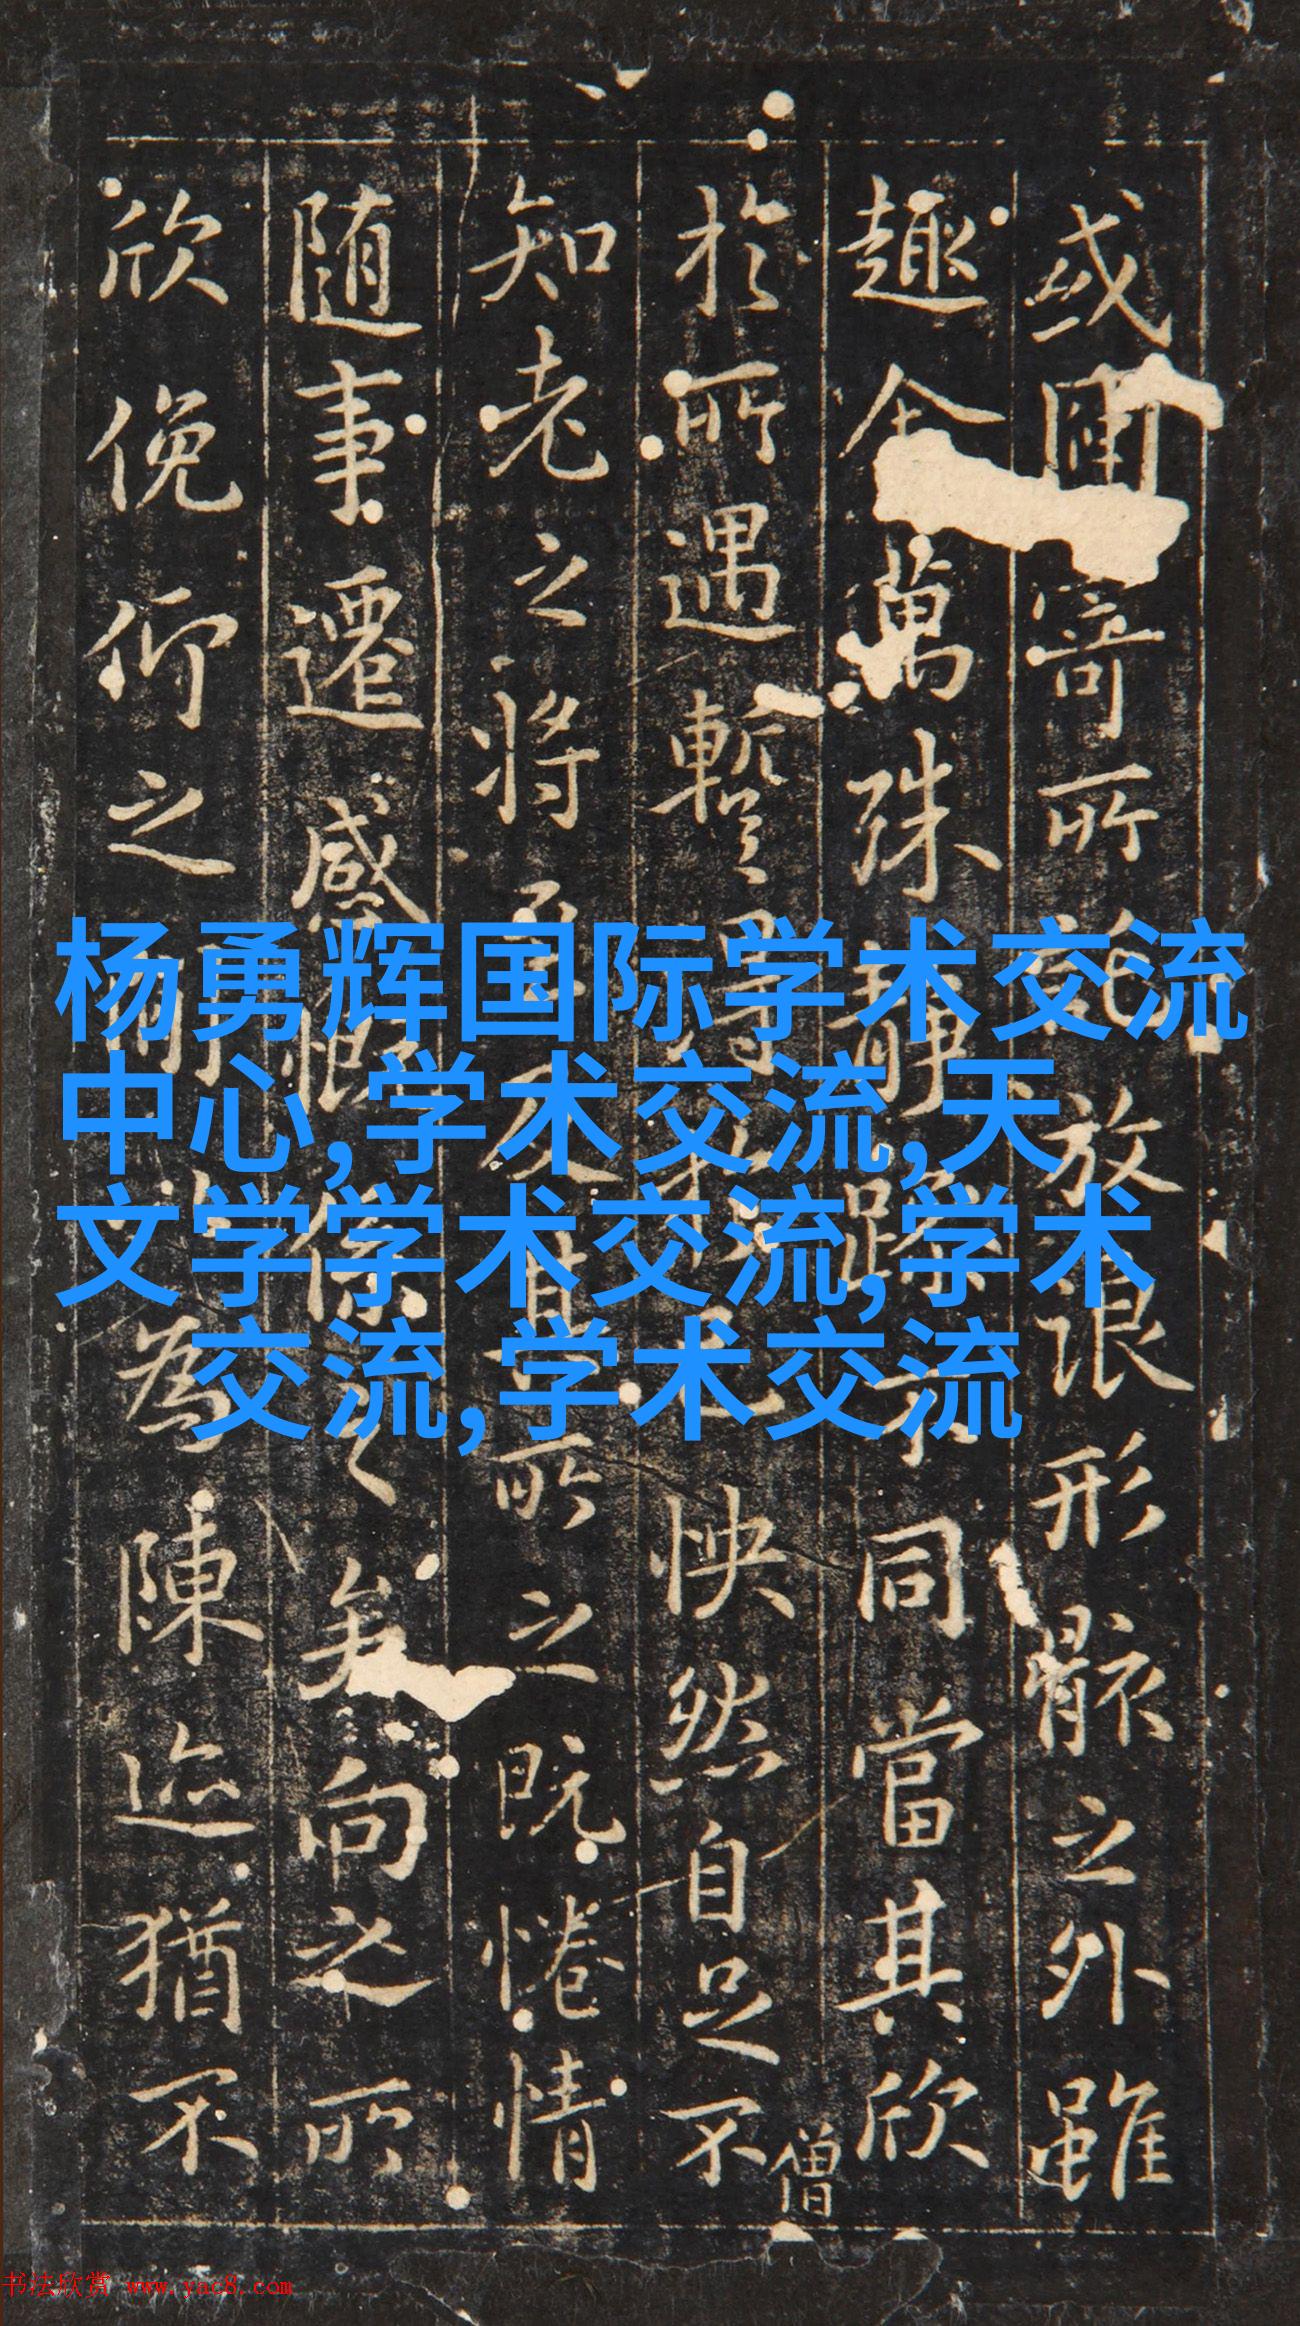 或因寄所託放浪形骸之外雖
趣舍萬殊靜躁不同當其欣
於所遇暫得於己怏然自足不
僧
知老之將至及其所之既惓情
随事遷感慨係之矣向之所
欣俛仰之間以為陳迹猶不
杨勇辉国际学术交流
中心,学术交流,天
文学学术交流,学术
交流,学术交流
书法欣赏 www.yac8.com